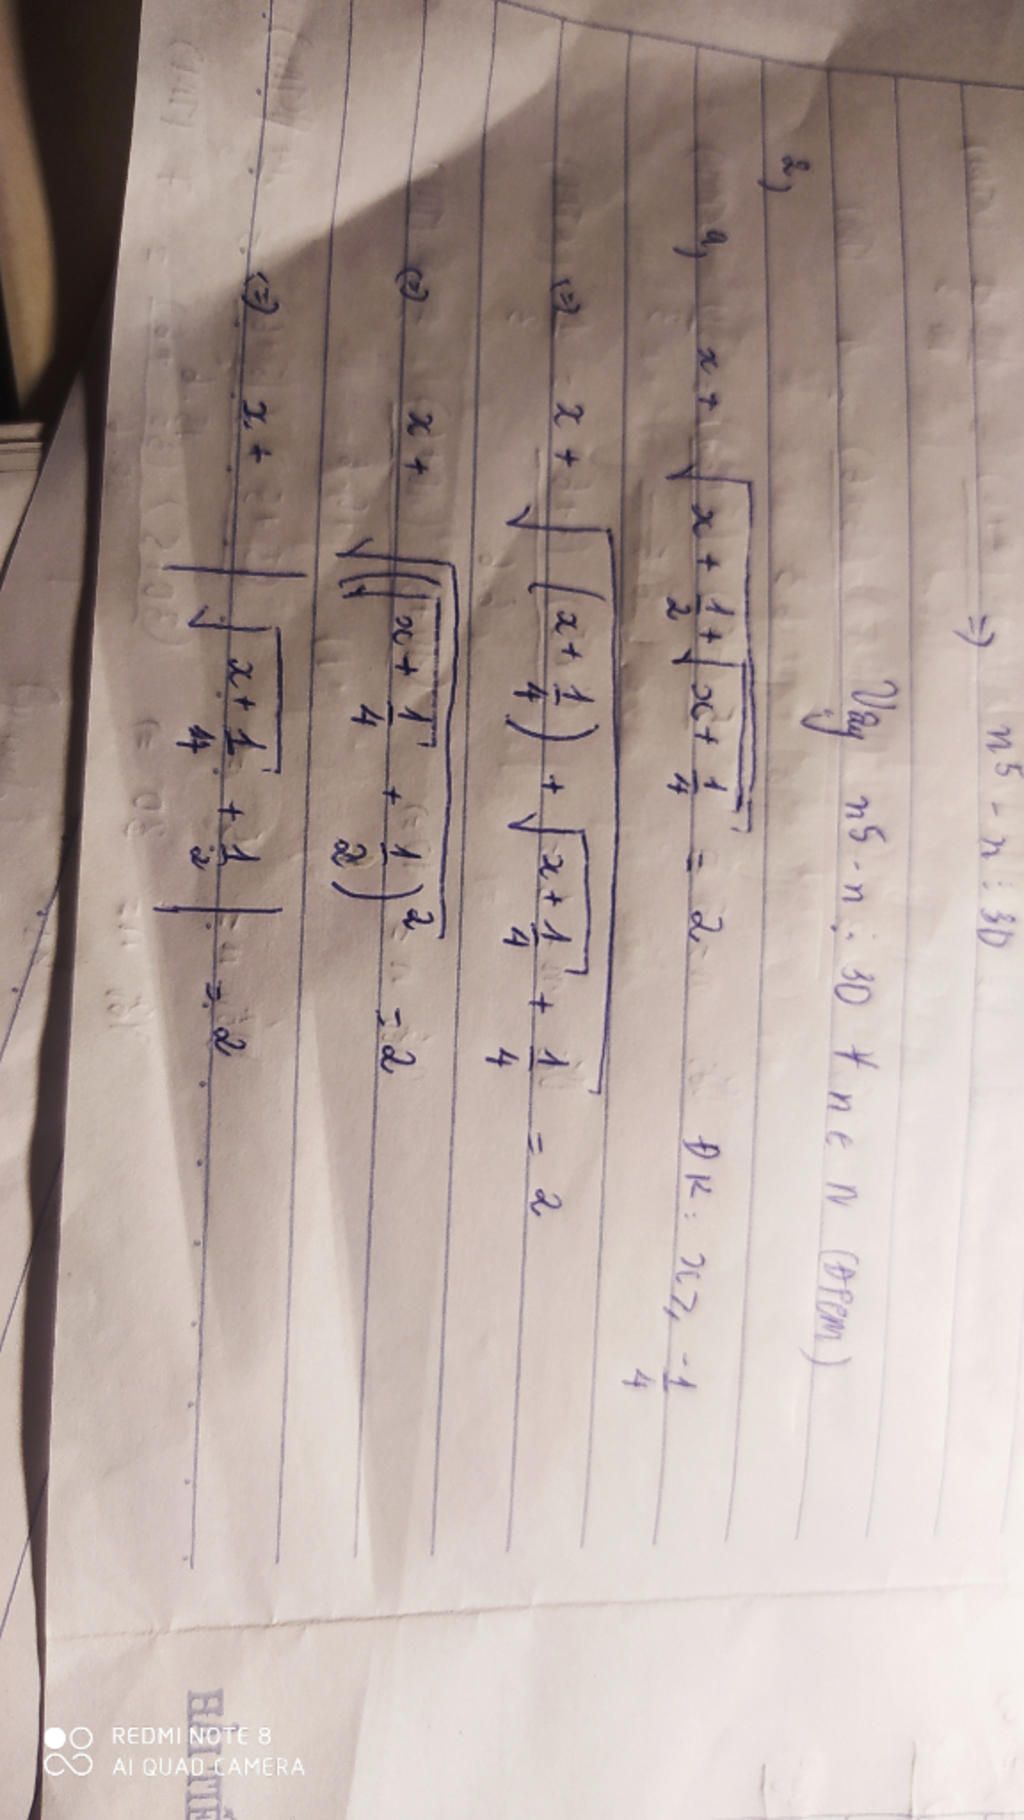 => n⁵ - n ⋮ 30
Vậy n⁵ - n ⋮ 30 ∀ n ∈ N (ĐPCM)
2,
a, x + √(x + 1/2 + √(x + 1/4)) = 2 ĐK: x ≥ -1/4
(=) x + √((x + 1/4) + √(x + 1/4) + 1/4) = 2
(=) x + √((√(x + 1/4) + 1/2)²) = 2
(=) x + |√(x + 1/4) + 1/2| = 2
REDMI NOTE 8
AI QUAD CAMERA